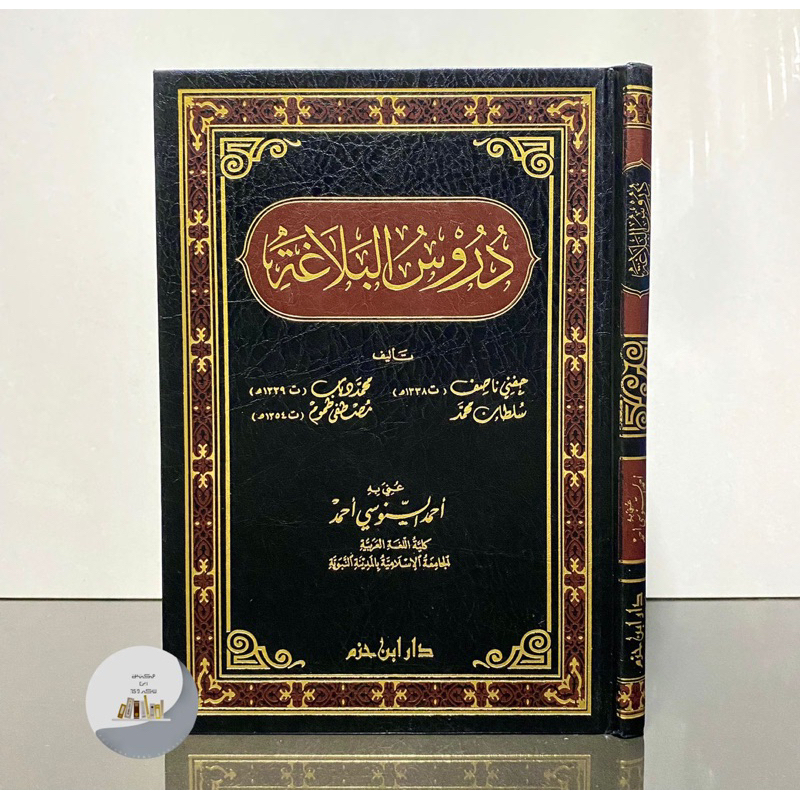 دُرُوسُ البَلَاغَةِ
تأليف
حفني ناصف (ت ١٣٣٨ه) محمد دياب (ت ١٣٣٩ه)
سلطان محمد مصطفى طموم (ت ١٣٥٤ه)
عُنِيَ بِهِ
أحمد السنوسي أحمد
كلية اللغة العربية
الجامعة الإسلامية بالمدينة النبوية
دار ابن حزم
دُرُوسُ البَلَاغَةِ
عني به
دار ابن حزم